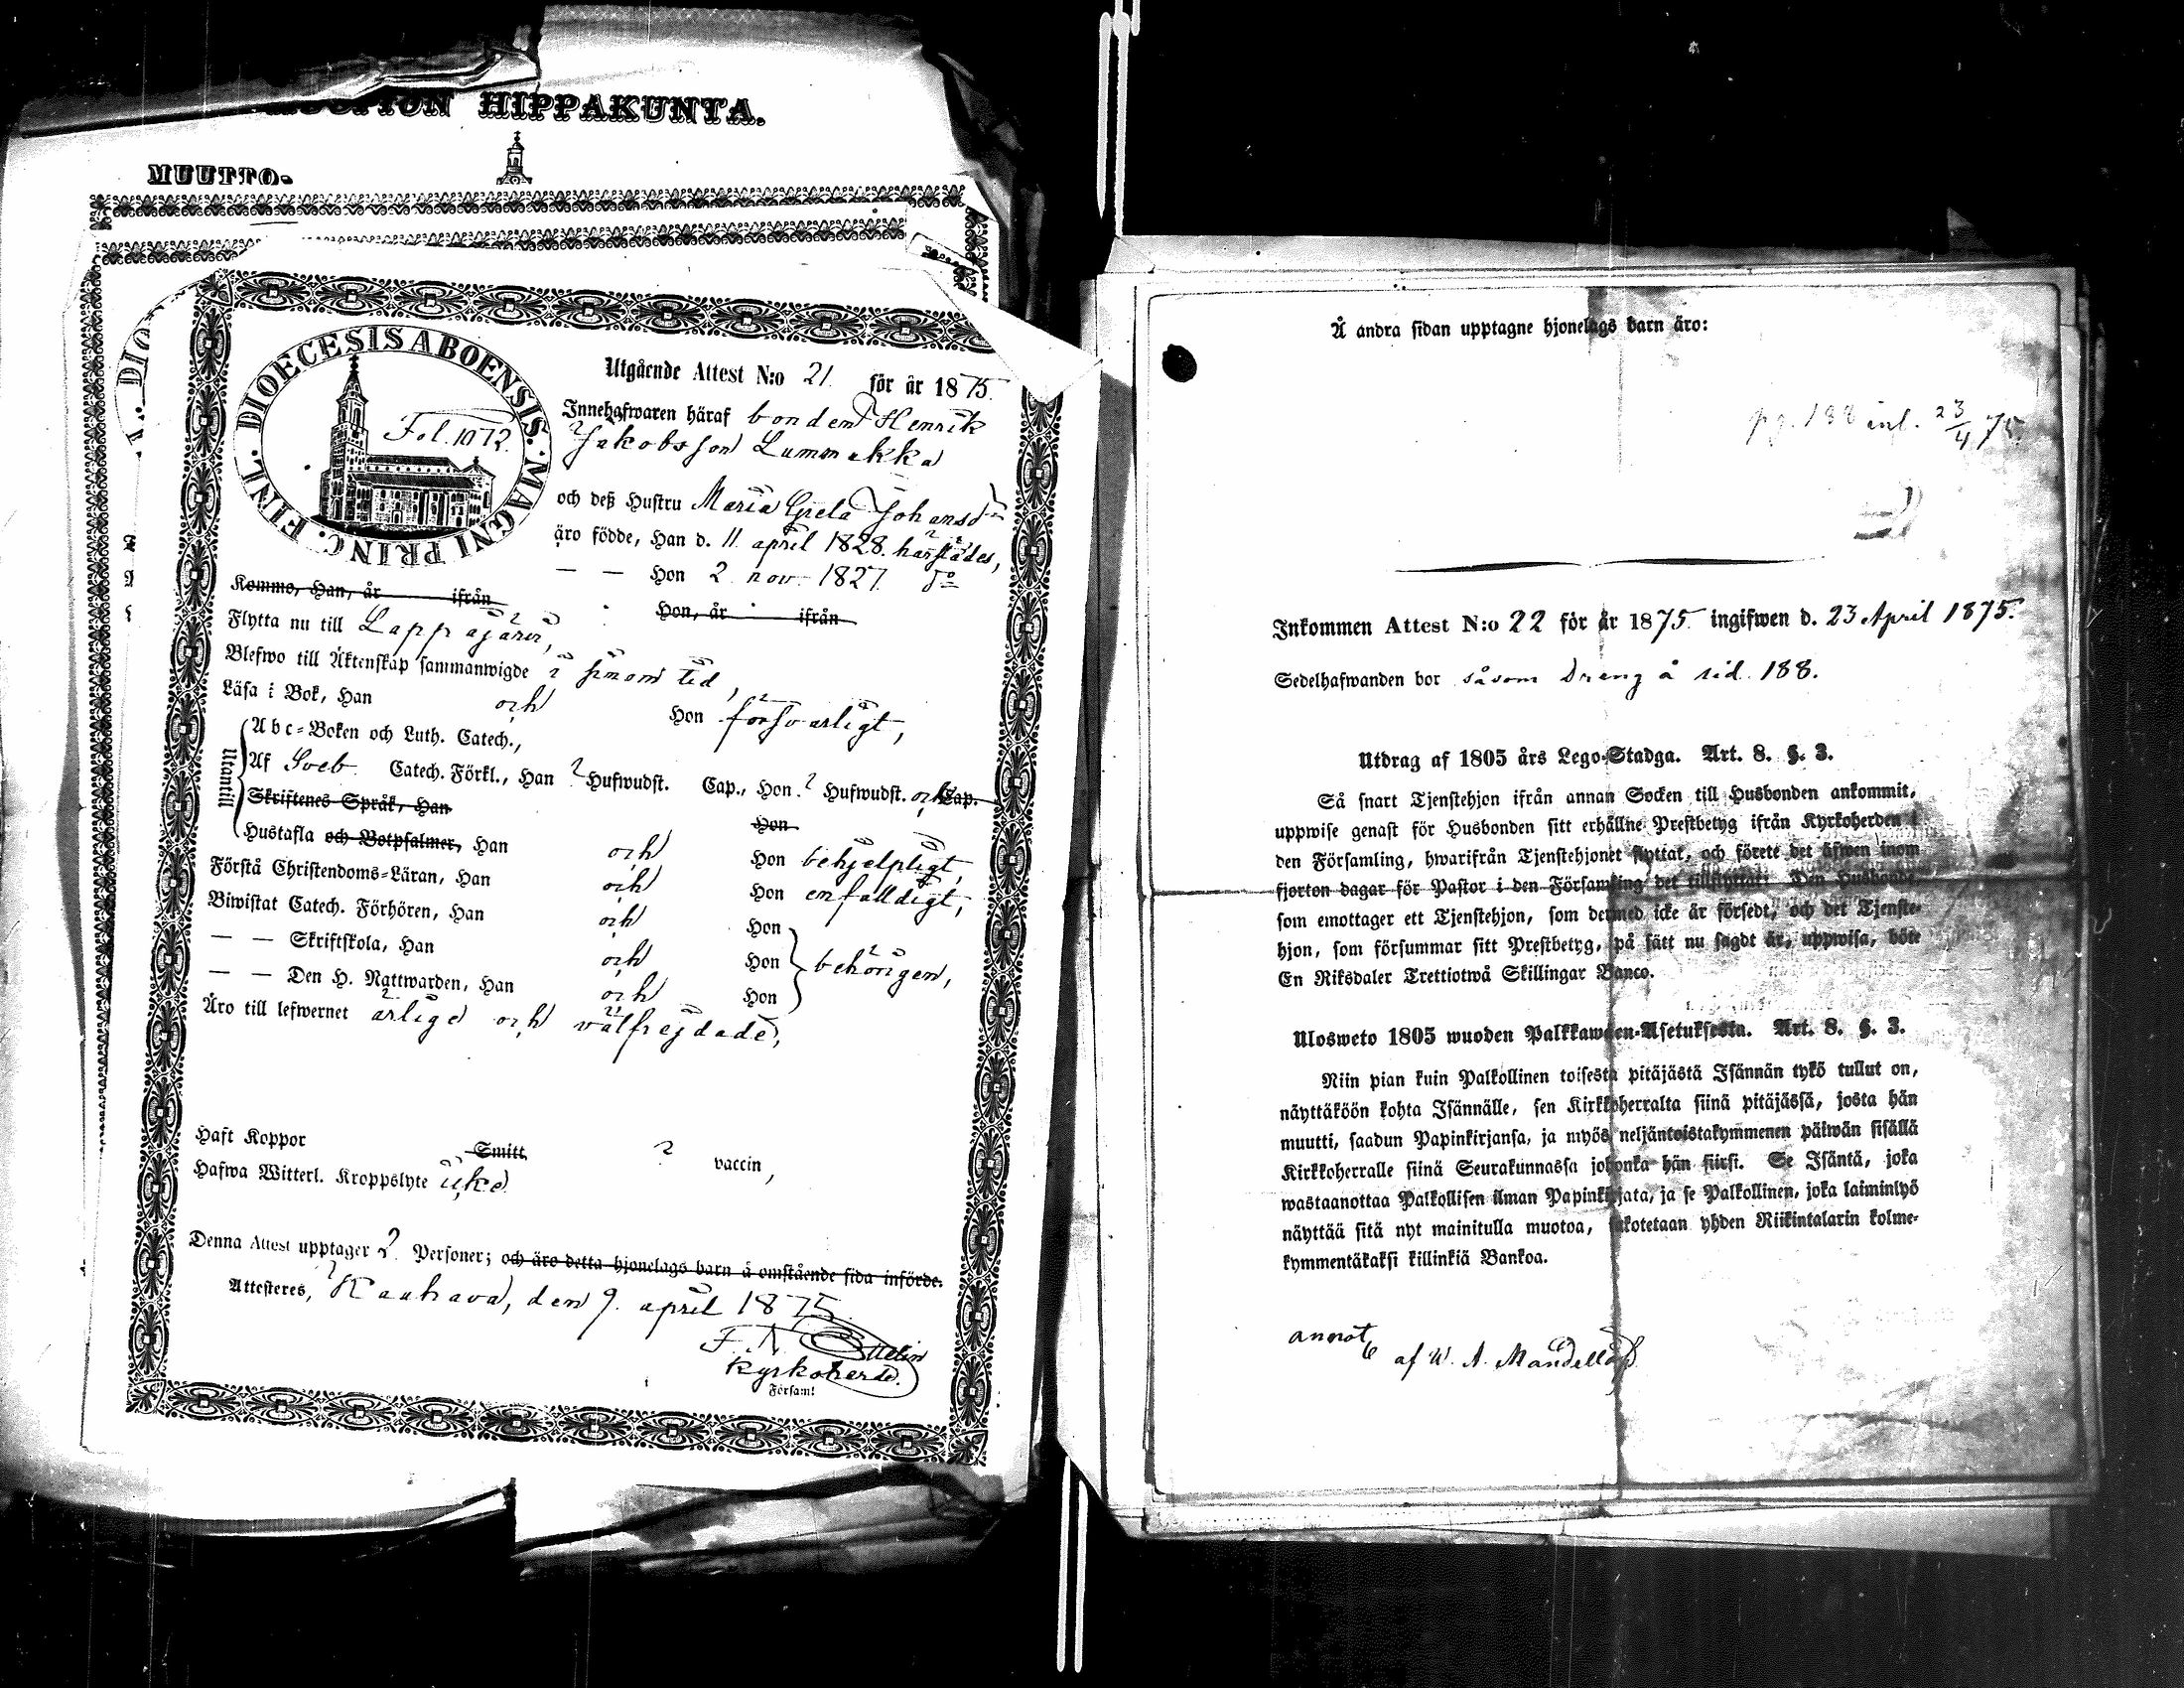 HIPPAKUNTA.
MUUTTO-
DIOECESIS ABOENSIS. MAGNI PRINC. FINL.
Fol. 1072.
Utgående Attest N:o 21. för år 1875.
Innehafwaren häraf bonden Henrik
Jakobsson Lummukka
och deß Hustru Maria Greta Johansdr
äro födde, Han d. 11 april 1828. härstädes,
— — Hon 2 nov. 1827. do
Kommo, Han, år ifrån Hon, år ifrån
Flytta nu till Lappajärvi,
Blefwo till Äktenskap sammanwigde i sinom tid,
Läsa i Bok, Han och Hon försvarligt,
Utantill
Abc-Boken och Luth. Catech.,
Af Sveb. Catech. Förkl., Han Hufwudst. Cap., Hon Hufwudst. och Cap.
Skriftenes Språk, Han Hon
Hustafla och Botpsalmer, Han och Hon behjelpligt,
Förstå Christendoms-Läran, Han och Hon enfalldigt,
Biwistat Catech. Förhören, Han och Hon
— — Skriftskola, Han och Hon behörigen,
— — Den H. Nattwarden, Han och Hon
Äro till lefwernet ärlige och välfrejdade,
Haft Koppor Smitt vaccin,
Hafwa Witterl. Kroppslyte icke
Denna Attest upptager 2 Personer; och äro detta hjonelags barn å omstående sida införde.
Attesteres, Kauhava, den 9. april 1875.
Kyrkoherde.
Församl
Å andra sidan upptagne hjonelags barn äro:
pg. 188 inl. 23/4 75.
Inkommen Attest N:o 22 för år 1875. ingifwen d. 23 April 1875.
Sedelhafwanden bor såsom Dreng å sid. 188.
Utdrag af 1805 års Lego-Stadga. Art. 8. §. 3.
Så snart Tjenstehjon ifrån annan Socken till Husbonden ankommit,
uppwise genast för Husbonden sitt erhållne Prestbetyg ifrån Kyrkoherden i
den Församling, hwarifrån Tjenstehjonet flyttat, och förete det äfwen inom
fjorton dagar för Pastor i den Församling det tillflyttat. Den Husbonde,
som emottager ett Tjenstehjon, som dermed icke är försedt, och det Tjenste-
hjon, som försummar sitt Prestbetyg, på sätt nu sagdt är, uppwisa, böte
En Riksdaler Trettiotwå Skillingar Banco.
Ulosweto 1805 wuoden Palkkawäen-Asetuksesta. Art. 8. §. 3.
Niin pian kuin Palkollinen toisesta pitäjästä Isännän tykö tullut on,
näyttäköön kohta Isännälle, sen Kirkkoherralta siinä pitäjässä, josta hän
muutti, saadun Papinkirjansa, ja myös neljäntoistakymmenen päiwän sisällä
Kirkkoherralle siinä Seurakunnassa johonka hän siirsi. Se Isäntä, joka
wastaanottaa Palkollisen ilman Papinkirjata, ja se Palkollinen, joka laiminlyö
näyttää sitä nyt mainitulla muotoa, sakotetaan yhden Riikintalarin kolme-
kymmentäkaksi killinkiä Bankoa.
annot
af W. A. Mandellöf